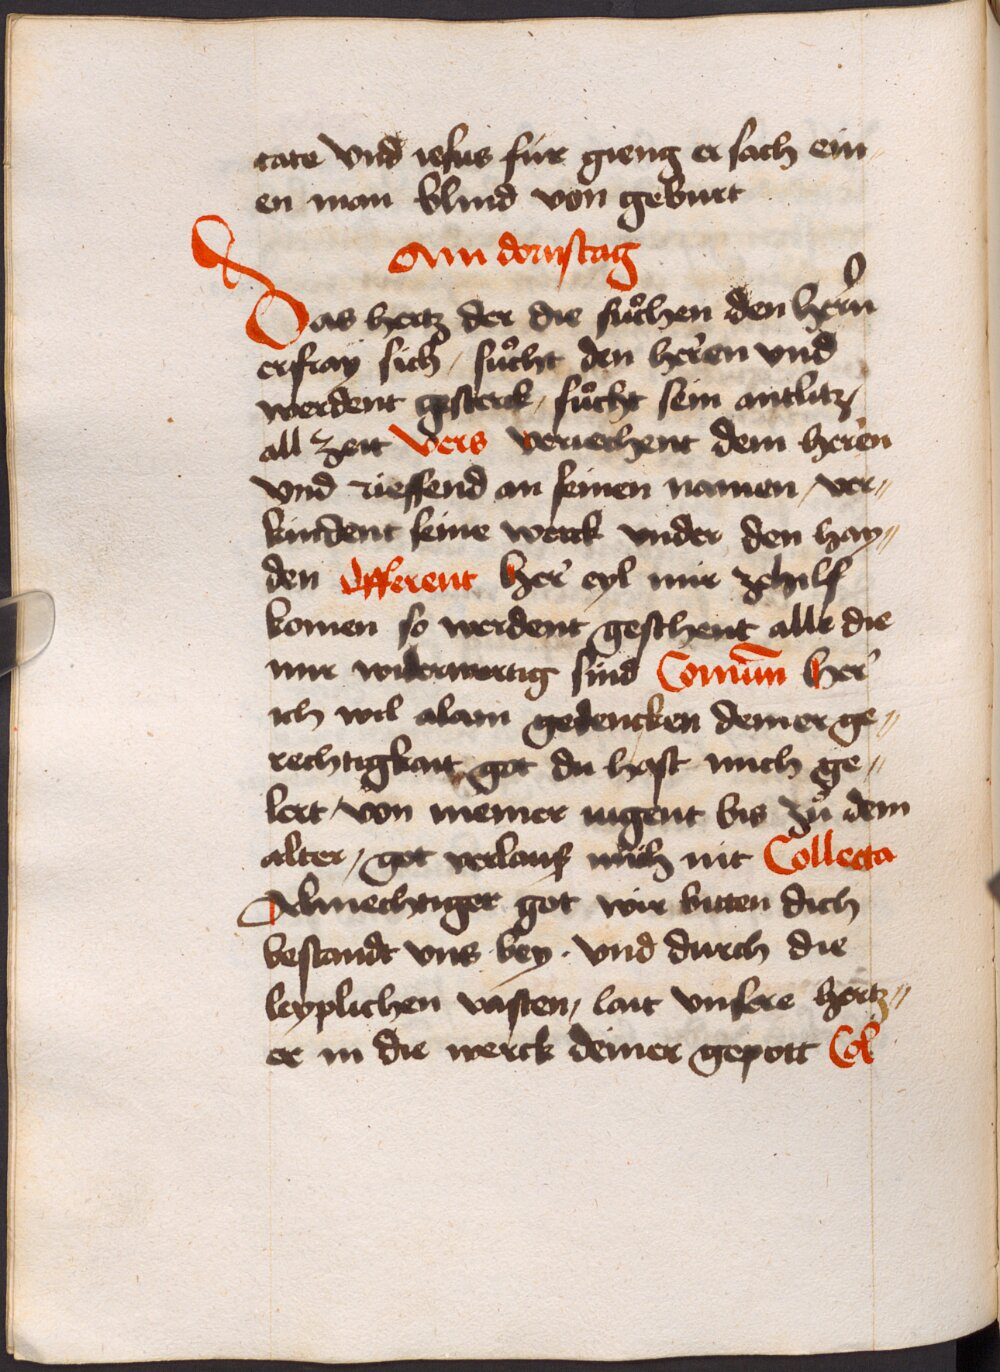 tate vnd iesus für gieng er sach ein
en man blind von geburt
Am dornstag
Das hertz der die suͦchen den hern
erfray sich / suͦcht den heren vnd
werdent gesterck / suͦcht sein antlitz /
all zeit Vers veriechent dem heren
vnd rieffend an seinen namen / ver⸗
kindent seine werck vnder den hay⸗
den Offerent Her eyl mir zehilf
komen so werdent geschent alle die
mir widerwertig sind Comūn her
ich wil alain gedencken deiner ge⸗
rechtigkait got du hast mich ge⸗
lert / von meiner iugent bis zuͦ dem
alter / got verlauss mich nit Collecta
Almechtiger got wir bitten dich
bestandt vns bey · vnd durch die
leyplichen vasten / lait vnsere hertz⸗
er in die werck deiner gepott Col